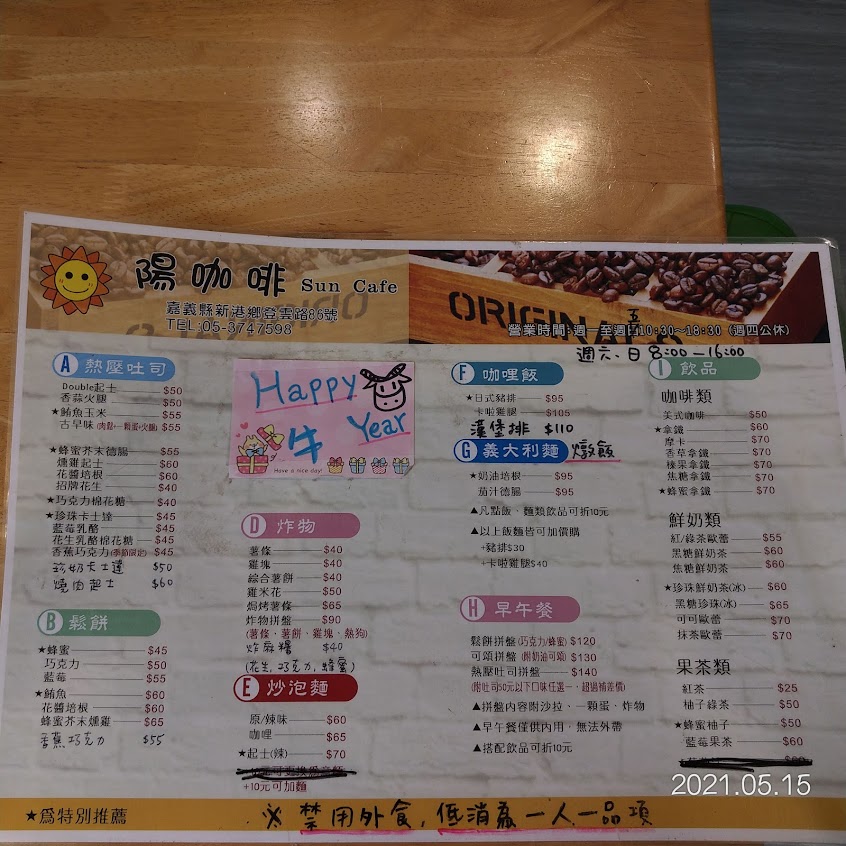 陽咖啡 Sun Cafe
嘉義縣新港鄉登雲路86號
TEL:05-3747598
ORIGINALS
營業時間:週一至週五10:30~18:30 (週四公休)
週六、日 8:00—16:00
A 熱壓吐司
Double起士 $50
香蒜火腿 $50
★鮪魚玉米 $55
古早味(肉鬆+一顆蛋+火腿) $55
★蜂蜜芥末德腸 $55
燻雞起士 $60
花醬培根 $60
招牌花生 $40
★巧克力棉花糖 $40
★珍珠卡士達 $45
藍莓乳酪 $45
花生乳酪棉花糖 $45
香蕉巧克力(季節限定) $45
珍奶卡士達 $50
燒肉起士 $60
B 鬆餅
★蜂蜜 $45
巧克力 $50
藍莓 $55
★鮪魚 $60
花醬培根 $60
蜂蜜芥末燻雞 $65
香蕉巧克力 $55
Happy
牛 Year
Have a nice day!
D 炸物
薯條 $40
雞塊 $40
綜合薯餅 $40
雞米花 $50
焗烤薯條 $65
炸物拼盤 $90
(薯條、薯餅、雞塊、熱狗)
炸麻糬 $40
(花生,巧克力,蜂蜜)
E 炒泡麵
原/辣味 $60
咖哩 $65
★起士(辣) $70
+10元可加麵
F 咖哩飯
★日式豬排 $95
卡啦雞腿 $105
漢堡排 $110
G 義大利麵 燉飯
★奶油培根 $95
茄汁德腸 $95
▲凡點飯、麵類飲品可折10元
▲以上飯麵皆可加價購
+豬排$30
+卡啦雞腿$40
H 早午餐
鬆餅拼盤(巧克力/蜂蜜) $120
可頌拼盤(附奶油可頌) $130
熱壓吐司拼盤 $140
(附吐司50元以下口味任選一、超過補差價)
▲拼盤內容附沙拉、一顆蛋、炸物
▲早午餐僅供內用、無法外帶
▲搭配飲品可折10元
I 飲品
咖啡類
美式咖啡 $50
★拿鐵 $60
摩卡 $70
香草拿鐵 $70
榛果拿鐵 $70
焦糖拿鐵 $70
★蜂蜜拿鐵 $70
鮮奶類
紅/綠茶歐蕾 $55
黑糖鮮奶茶 $60
焦糖鮮奶茶 $60
★珍珠鮮奶茶(冰) $60
黑糖珍珠(冰) $65
可可歐蕾 $70
抹茶歐蕾 $70
果茶類
紅茶 $25
柚子綠茶 $50
★蜂蜜柚子 $50
藍莓果茶 $60
2021.05.15
★為特別推薦
※禁用外食,低消為一人一品項